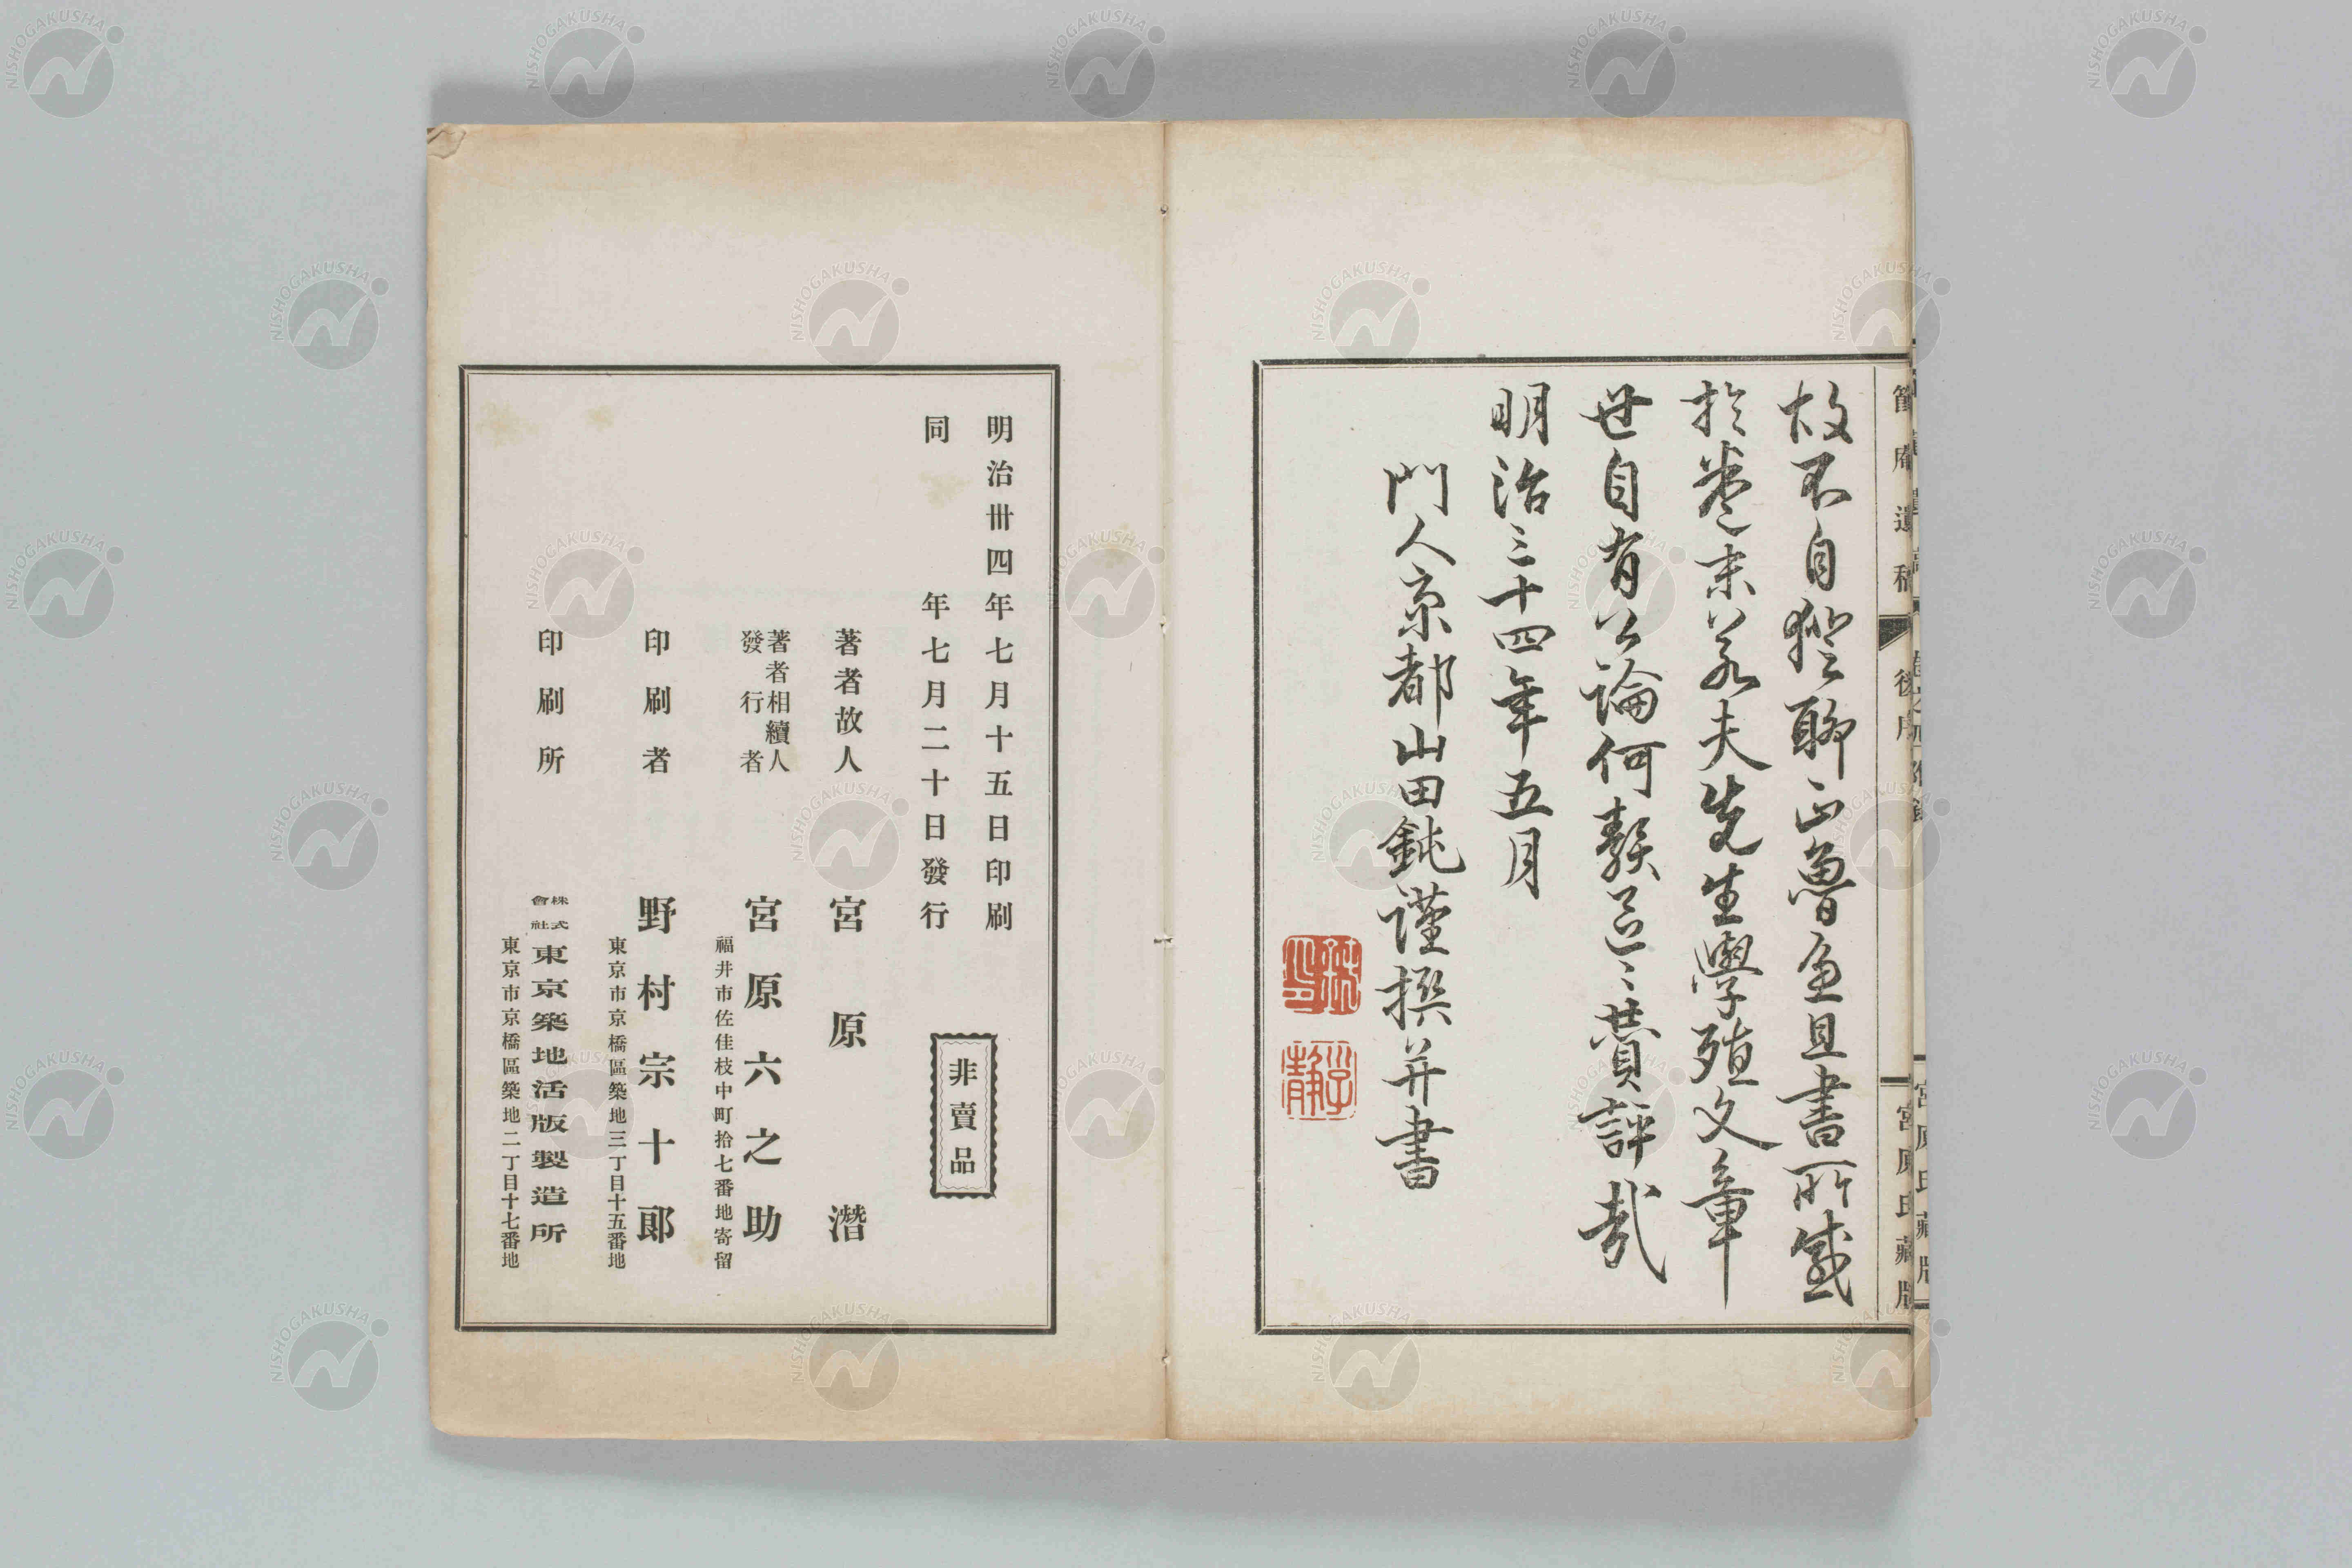 故不自揆聊正魯魚且書所感
於卷末若夫先生學殖文章
世自有公論何須區〻贊評哉
明治三十四年五月
門人京都山田鈍謹撰并書
後序
宮原氏藏版
明治卅四年七月十五日印刷
同年七月二十日發行
非賣品
著者故人 宮原潛
著者相續人
發行者 宮原六之助
福井市佐佳枝中町拾七番地寄留
印刷者 野村宗十郎
東京市京橋區築地三丁目十五番地
印刷所 株式會社東京築地活版製造所
東京市京橋區築地二丁目十七番地
NISHOGAKUSHA